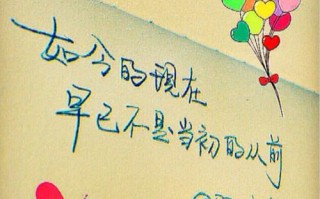 如今的現在
早已不是当初的从前